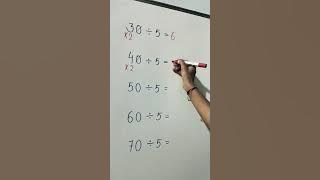 30 ÷ 5 = 6
x2
40 ÷ 5 =
x2
50 ÷ 5 =
60 ÷ 5 =
70 ÷ 5 =